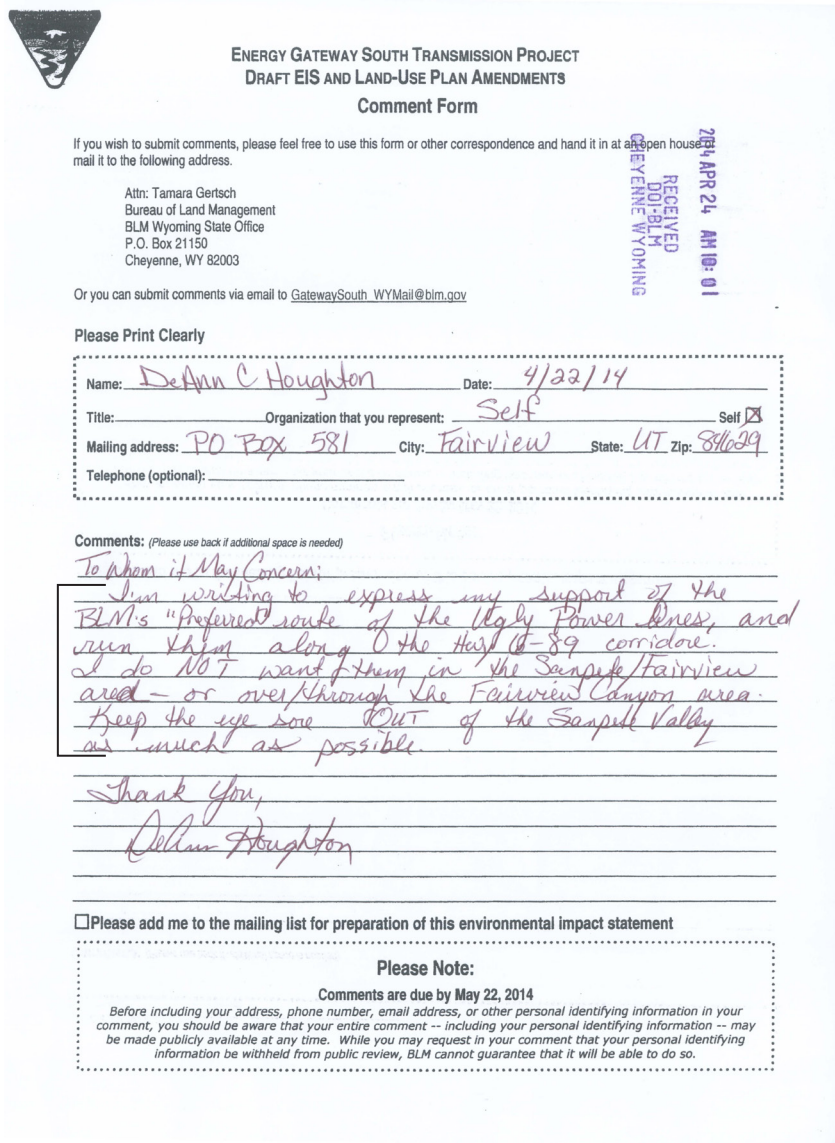 ENERGY GATEWAY SOUTH TRANSMISSION PROJECT
DRAFT EIS AND LAND-USE PLAN AMENDMENTS
Comment Form
If you wish to submit comments, please feel free to use this form or other correspondence and hand it in at an open house or
mail it to the following address.
2014 APR 24 AM 10: 01
RECEIVED
DOI-BLM
CHEYENNE WYOMING
Attn: Tamara Gertsch
Bureau of Land Management
BLM Wyoming State Office
P.O. Box 21150
Cheyenne, WY 82003
Or you can submit comments via email to GatewaySouth_WYMail@blm.gov
Please Print Clearly
Name: DeAnn C Houghton Date: 4/22/14
Title: Organization that you represent: Self Self
Mailing address: PO Box 581 City: Fairview State: UT Zip: 84629
Telephone (optional):
Comments: (Please use back if additional space is needed)
To Whom it May Concern;
I'm writing to express my support of the
BLM's "Preferred" route of the Ugly Power Lines, and
run them along the 6-89 corridore.
I do NOT want them in the Sanpete/Fairview
area - or over/through the Fairview Canyon area.
Keep the eye sore OUT of the Sanpete Valley
as much as possible.
Thank You,
DeAnn Houghton
Please add me to the mailing list for preparation of this environmental impact statement
Please Note:
Comments are due by May 22, 2014
Before including your address, phone number, email address, or other personal identifying information in your
comment, you should be aware that your entire comment -- including your personal identifying information -- may
be made publicly available at any time. While you may request in your comment that your personal identifying
information be withheld from public review, BLM cannot guarantee that it will be able to do so.